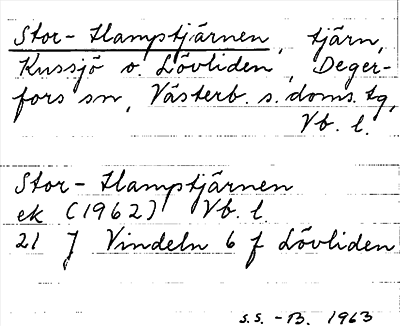 Stor-Hampstjärnen, tjärn,
Kussjö o. Lövliden, Deger-
fors sn, Västerb. s. doms. tg,
Vb. l.
Stor-Hampstjärnen
ek (1962) Vb. l.
21 J Vindeln 6 f Lövliden
s.s. -B. 1963